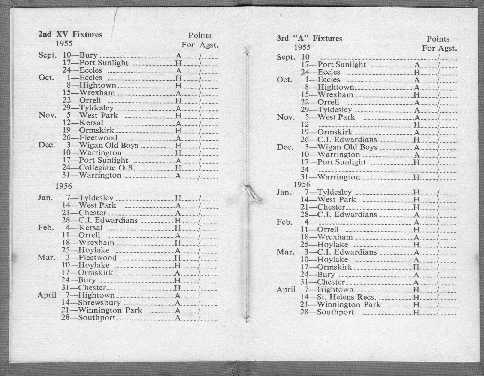 2nd XV Fixtures Points
1955 For Agst.
Sept. 10—Bury A
17—Port Sunlight H
24—Eccles A
Oct. 1—Eccles H
8—Hightown H
15—Wrexham A
22—Orrell H
29—Tyldesley A
Nov. 5—West Park H
12—Kersal A
19—Ormskirk H
26—Fleetwood A
Dec. 3—Wigan Old Boys H
10—Warrington H
17—Port Sunlight A
24—Collegiate O.B. H
31—Warrington A
1956
Jan. 7—Tyldesley H
14—West Park A
21—Chester A
28—C.I. Edwardians H
Feb. 4—Kersal H
11—Orrell A
18—Wrexham H
25—Hoylake A
Mar. 3—Fleetwood H
10—Hoylake H
17—Ormskirk A
24—Bury H
31—Chester H
April 7—Hightown A
14—Shrewsbury A
21—Winnington Park A
28—Southport A
3rd "A" Fixtures Points
1955 For Agst.
Sept. 10
17—Port Sunlight A
24—Eccles H
Oct. 1—Eccles A
8—Hightown A
15—Wrexham H
22—Orrell A
29—Tyldesley A
Nov. 5—West Park A
12 H
19—Ormskirk A
26—C.I. Edwardians H
Dec. 3—Wigan Old Boys A
10—Warrington A
17—Port Sunlight H
24
31—Warrington H
1956
Jan. 7—Tyldesley H
14—West Park H
21—Chester H
28—C.I. Edwardians A
Feb. 4 A
11—Orrell H
18—Wrexham A
25—Hoylake H
Mar. 3—C.I. Edwardians A
10—Hoylake A
17—Ormskirk H
24—Bury A
31—Chester A
April 7—Hightown H
14—St. Helens Recs. H
21—Winnington Park H
28—Southport H